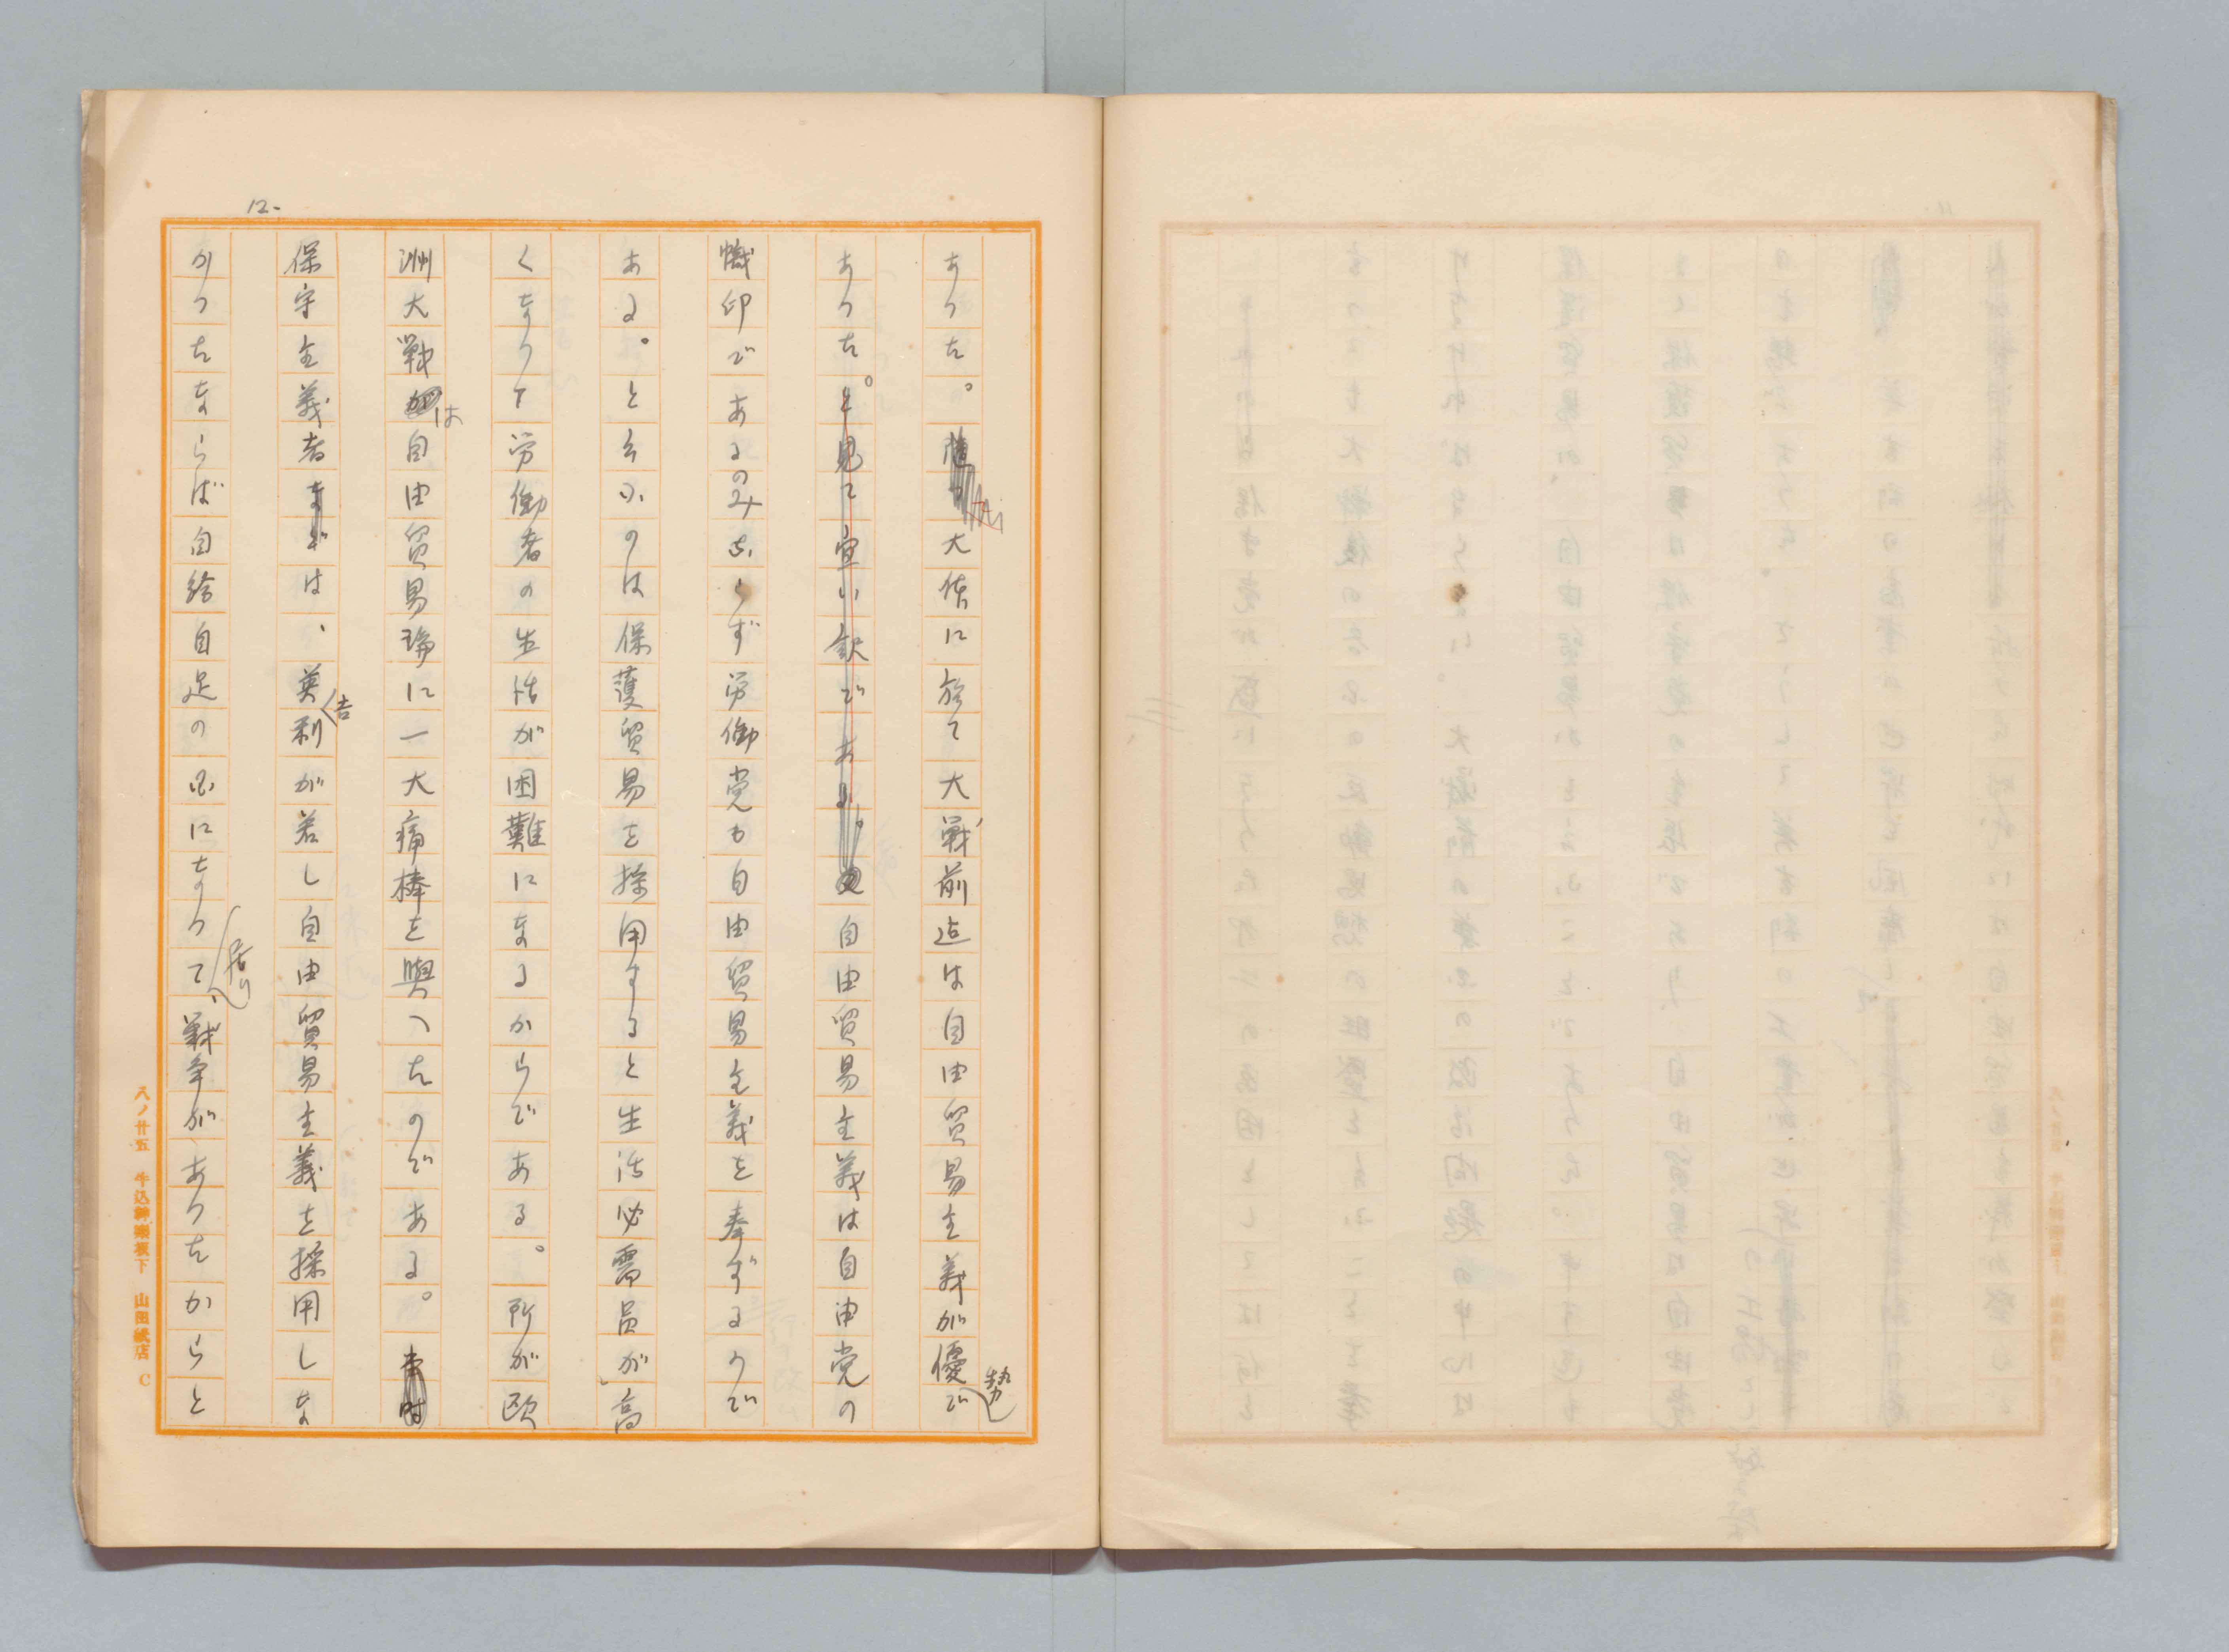 12-
あつた。大体に於て大戦前迄は自由貿易主義が優勢で
あつた。と見て宜い訳である。自由貿易主義は自由党の
幟印であるのみならず労働党も自由貿易主義を奉ずるので
ある。と云ふのは保護貿易を採用すると生活必需品が高
くなつて労働者の生活が困難になるからである。所が欧
洲大戦は自由貿易論に一大痛棒を與へたのである。
保守主義者は、英吉利が若し自由貿易主義を採用しな
かつたならば自給自足の国になつて居り、戦争があつたからと
八ノ廿五 牛込神楽坂下 山田紙店 C